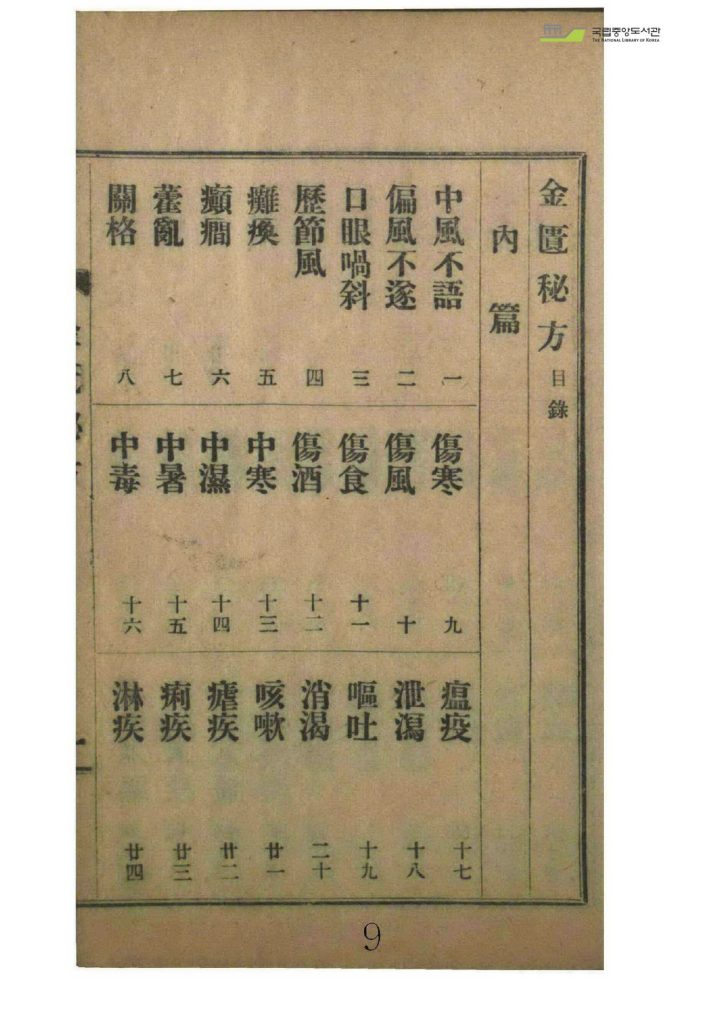 국립중앙도서관
THE NATIONAL LIBRARY OF KOREA
金匱秘方 目錄
內篇
中風不語 一
偏風不遂 二
口眼喎斜 三
歷節風 四
癱瘓 五
癲癎 六
藿亂 七
關格 八
傷寒 九
傷風 十
傷食 十一
傷酒 十二
中寒 十三
中濕 十四
中暑 十五
中毒 十六
瘟疫 十七
泄瀉 十八
嘔吐 十九
消渴 二十
咳嗽 廿一
瘧疾 廿二
痢疾 廿三
淋疾 廿四
9